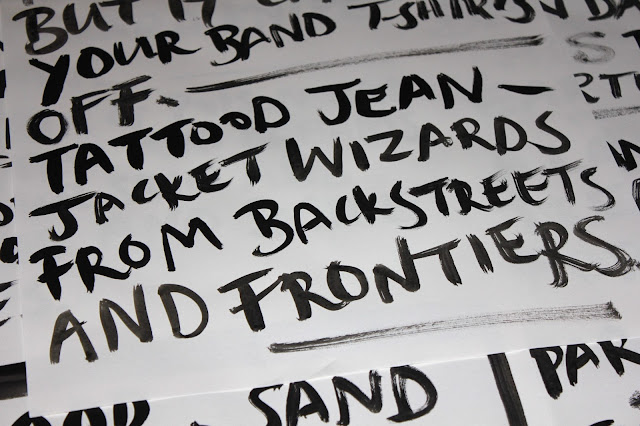 BUT IT
YOUR BAND T-SHIRTS
OFF.
TATTOOD JEAN-
JACKET WIZARDS
FROM BACKSTREETS
AND FRONTIERS
SAND
PAR